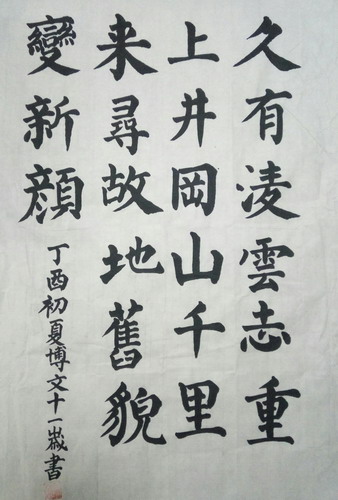 久有淩雲志重
上井岡山千里
来尋故地舊貌
變新顔
丁酉初夏博文十一歲書